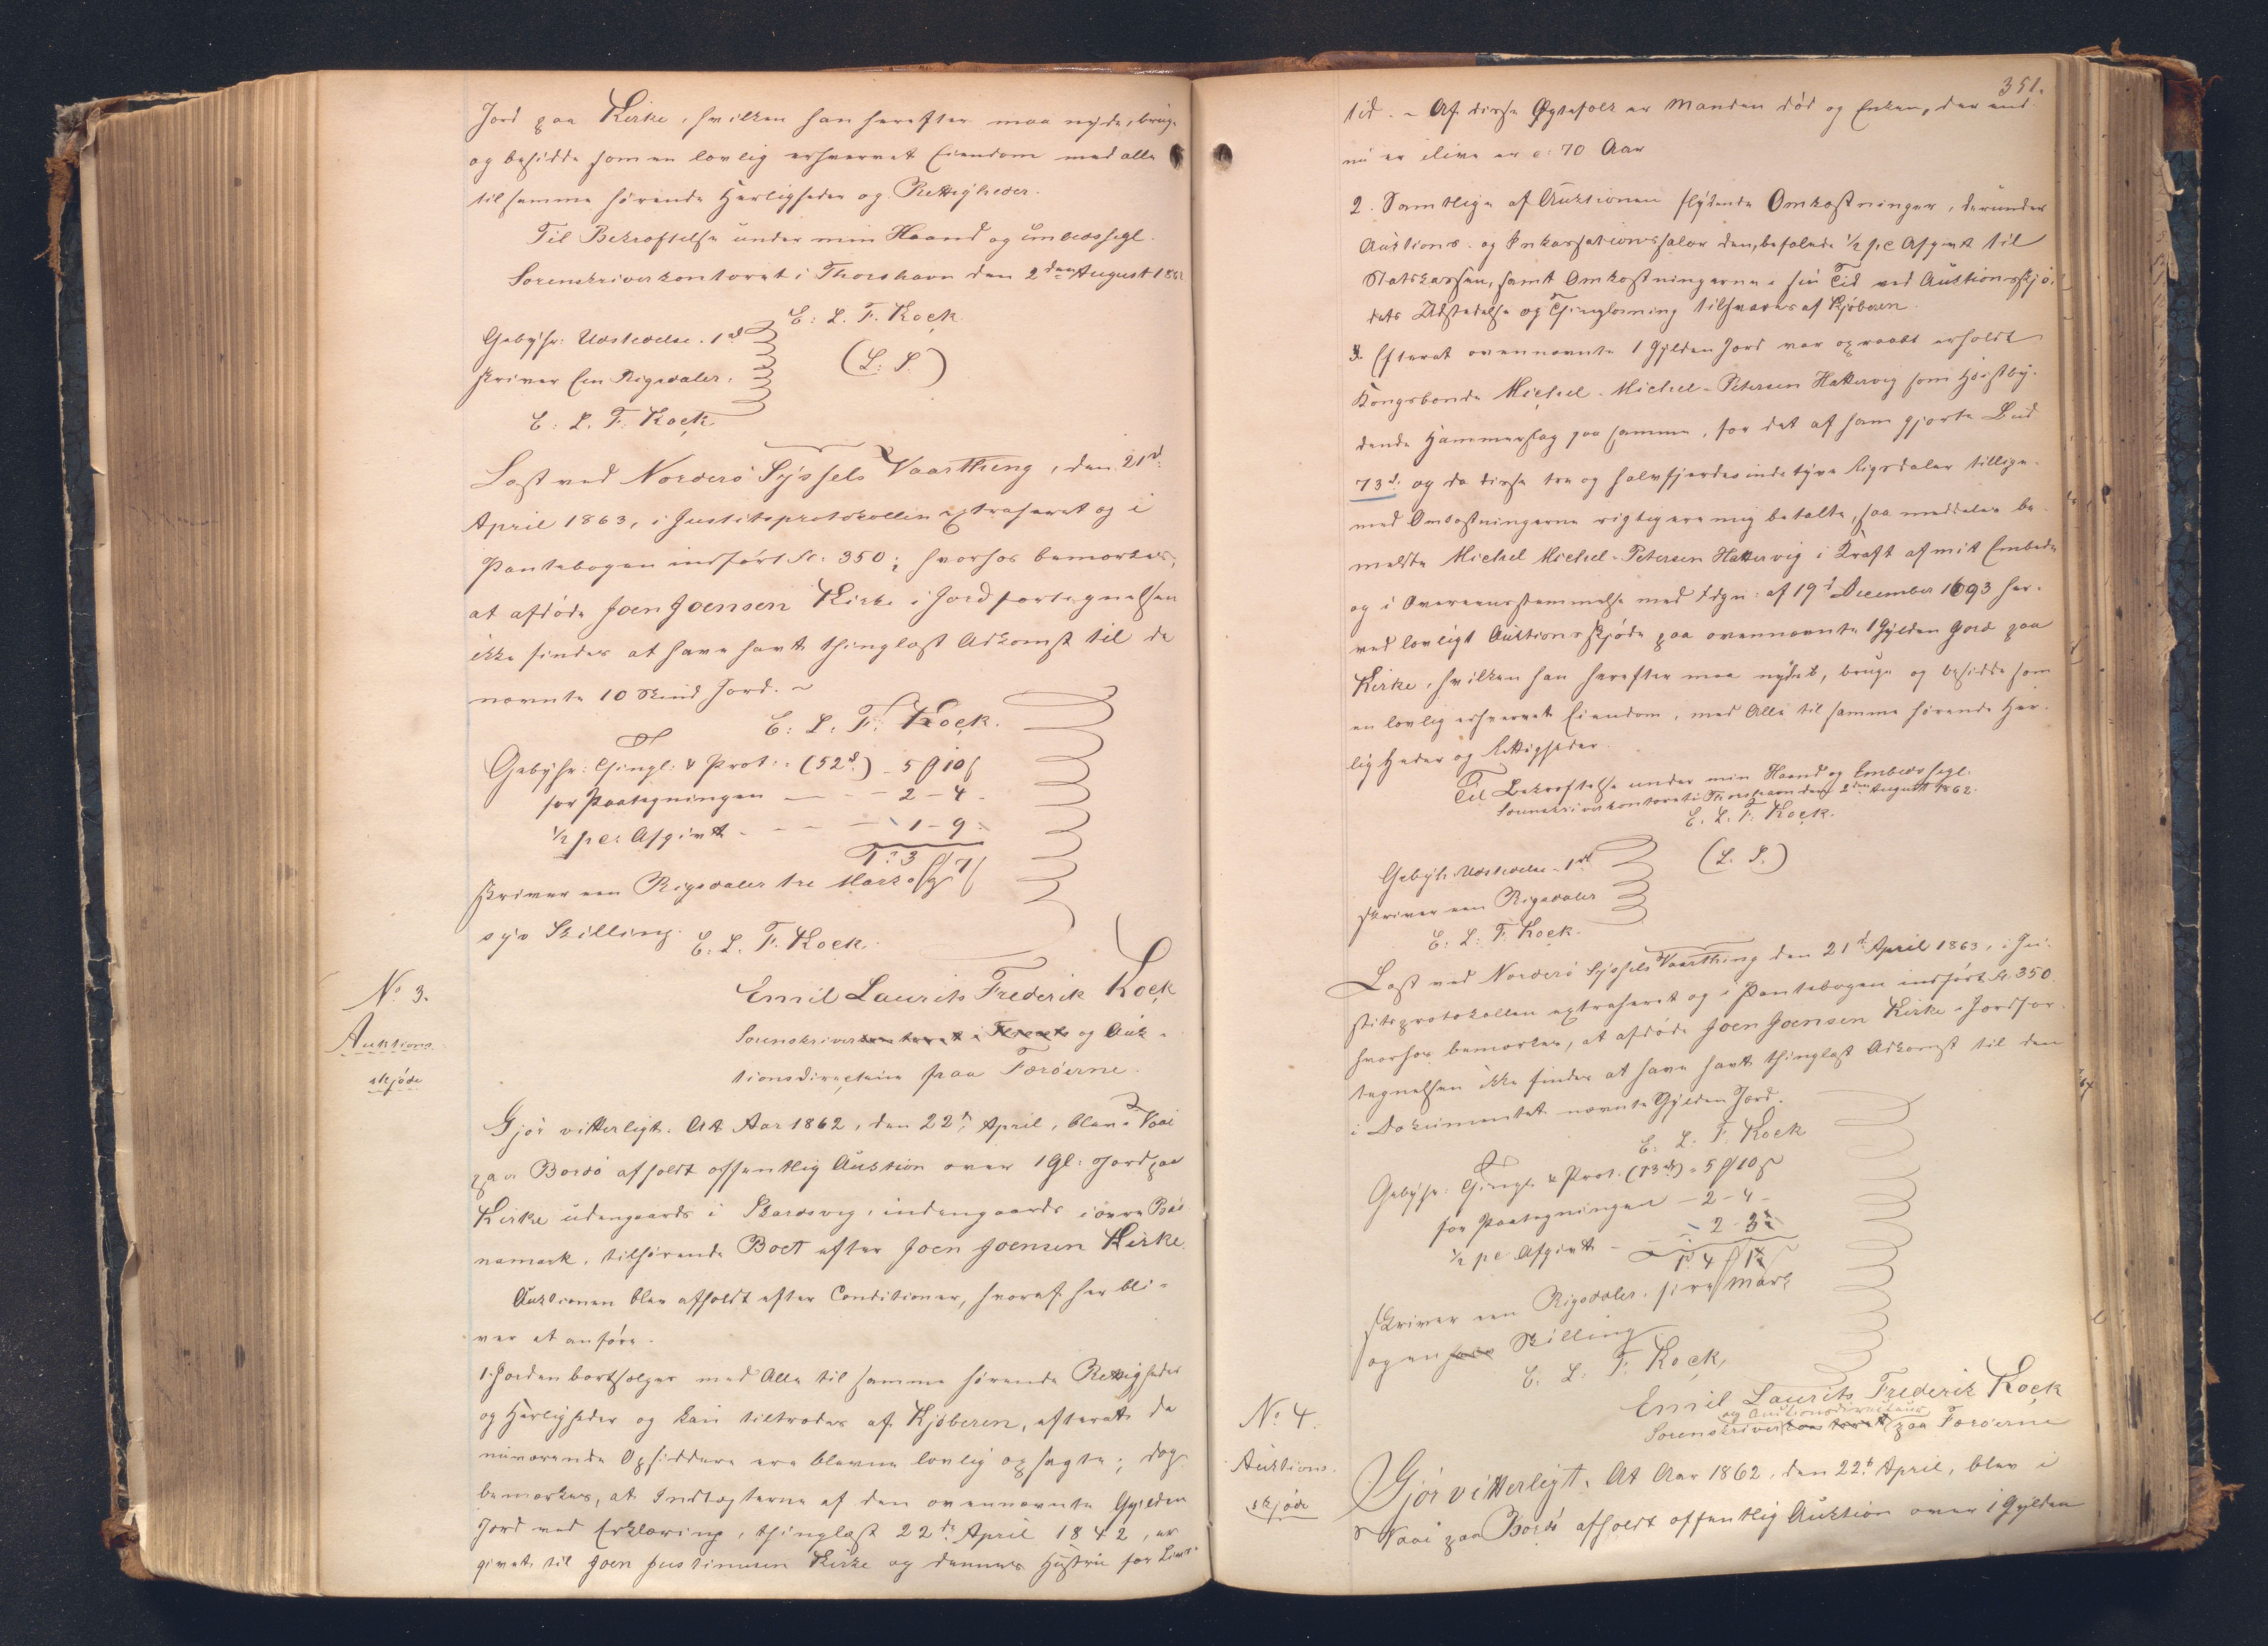 Jord paa Kirke, hvilken han herefter maa nyde, bruge
og besidde som en lovlig erhvervet Eiendom med alle
til samme hørende Herligheder og Rettigheder.
Til Bekræftelse under min Haand og Embedssegl.
Sorenskriverkontoret i Thorshavn den 2den August 1862
E: L. F. Kock.
Gebyhr: Udstedelse. 1 rd
(L: S.)
skriver Een Rigsdaler.
E: L. F. Kock
Læst ved Norderø Syssels Vaarthing, den 21d.
April 1863, i Justitsprotokollen extraheret og i
Pantebogen indført Fol. 350; hvorhos bemærkes,
at afdøde Joen Joensen Kirke i Jordfortegnelsen
ikke findes at have havt thinglæst Adkomst til de
nævnte 10 Skind Jord. ~
E: L. F. Kock.
Gebyhr: Thingl: & Prot: (52 rd.) - 5 ß 10 ſ
for Paategningen — - - 2 - 4 -
1/2 pc: Afgivt - - - - 1 - 9 -
1. 3 7
skriver een Rigsdaler tre Mark og
syv Skilling. E. L. F. Kock.
No 3.
Auktions
skjøde
Emil Laurits Frederik Kock
Sorenskriver og Auk-
tionsdirecteur paa Færøerne.
Gjør vitterligt: At Aar 1862, den 22de April, blev i Vaai
paa Bordø afholdt offentlig Auktion over 1 Gl: Jord paa
Kirke udengaards i Skardsvig, indengaards i øvre Bøi
nemark, tilhørende Boet efter Joen Joensen Kirke.
Auktionen blev afholdt efter Conditioner, hvoraf her bli-
ver at anføre.
1. Jorden bortsælges med Alle til samme hørende Rettigheder
og Herligheder og kan tiltrædes af Kjøberen, efterat de
nuværende Opsiddere ere blevne lovlig opsagte; dog
bemærkes, at Indtægterne af den ovennævnte Gylden
Jord ved Erklæring, thinglæst 22de April 1842, er
givet til Joen Justinusen Kirke og dennes Hustru for Livs-
351.
tid. - Af disse Ægtefolk er Manden død og Enken, der end-
nu er ilive er c: 70 Aar
2. Samtlige af Auktionen flydende Omkostninger, derunder
Auktions- og Inkassationssalær den befalede 1/2 pc Afgivt til
Statskassen, samt Omkostningerne i sin Tid ved Auktionsskjø-
dets Udstedelse og Thinglæsning tilsvares af Kjøberen.
3. Efterat ovennævnte 1 Gylden Jord var opraabt erholdt
Kongsbonde Michel Michel-Petersen Hattervig som Høistby-
dende Hammerslag paa samme, for det af ham gjorte Bud
73 d. og da disse tre og halvfjerdesindstyve Rigsdaler tillige-
med Omkostningerne rigtig ere mig betalte, saa meddeles be-
meldte Michel Michel-Petersen Hattervig i Kraft af mit Embede
og i Overeensstemmelse med Fdgn: af 19d December 1693 her-
ved lovligt Auktionsskjøde paa ovennævnte 1 Gylden Jord paa
Kirke, hvilken han herefter maa nyde, bruge og besidde som
en lovlig erhvervet Eiendom, med Alle til samme hørende Her-
ligheder og Rettigheder.
Til Bekræftelse under min Haand og Embedssegl.
Sorenskriverkontoret i Thorshavn den 2den August 1862.
E. L. F. Kock.
Gebyh: Udstedelse - 1 rd
(L. S.)
skriver een Rigsdaler
E: L: F. Kock.
Læst ved Norderø Syssels Vaarthing den 21d April 1863, i Ju-
stitsprotokollen extraheret og i Pantebogen indført Fol. 350
hvorhos bemærkes, at afdøde Joen Joensen Kirke i Jordfor-
tegnelsen ikke findes at have havt thinglæst Adkomst til den
i Dokumentet nævnte Gylden Jord.
E. L. F. Kock
Gebyhr: Thingl. & Prot. (73 rd) - 5 ß 10 ſ
for Paategningen - 2 - 4 -
1/2 pc Afgivt - 2 - 3
1. 4 1
skriver een Rigsdaler, fire Mark
og en Skilling
E. L. F. Kock,
No 4.
Auktions-
skjøde
Emil Laurits Frederik Kock
og Auktionsdirecteur
Sorenskriver paa Færøerne
Gjør vitterligt: At Aar 1862, den 22de April, blev i
Vaai paa Bordø afholdt offentlig Auktion over 1 Gylden